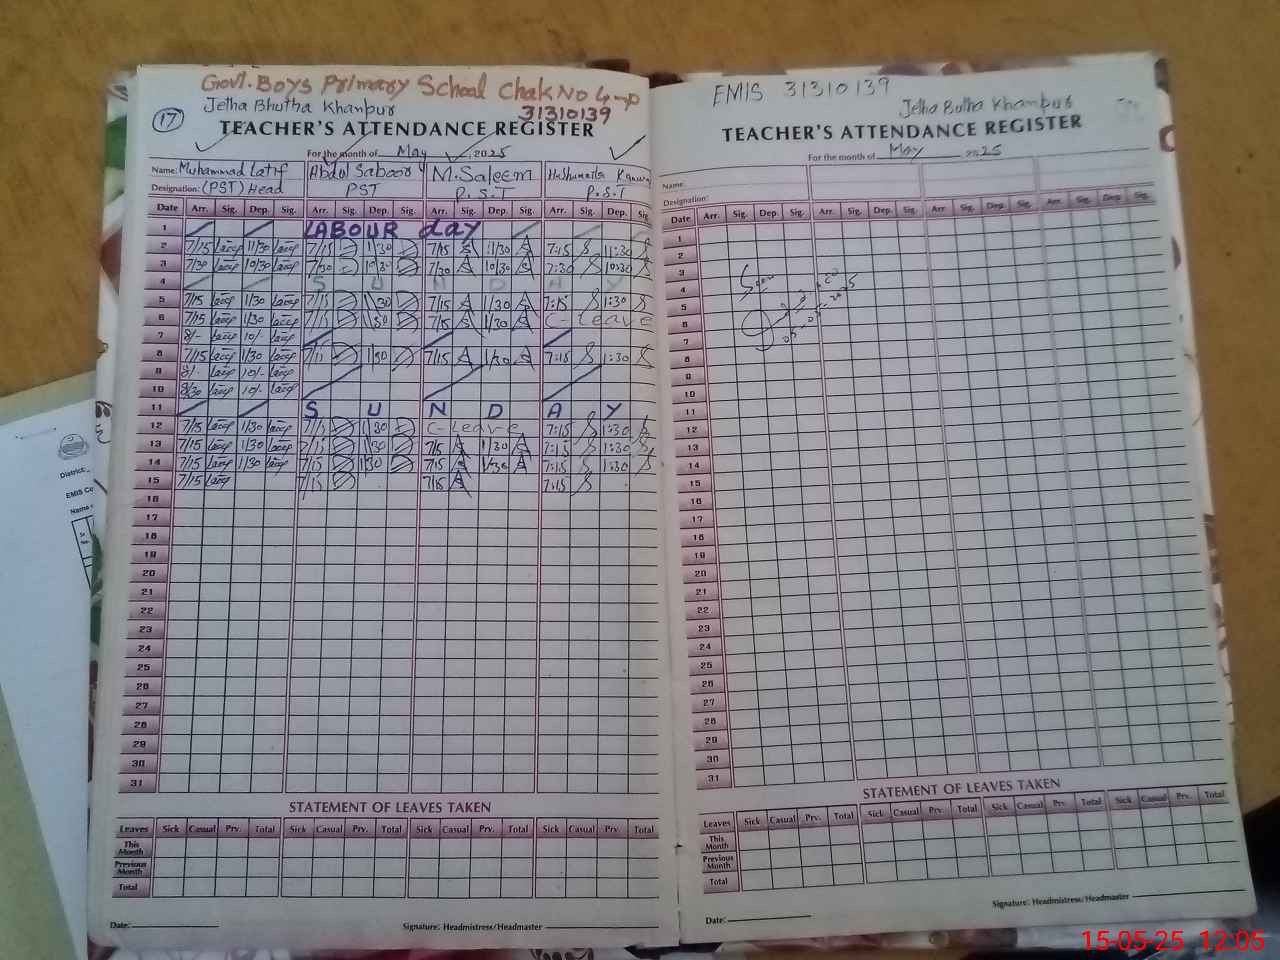 Govt. Boys Primary School Chak No 4-P
Jetha Bhutha Khanpur 31310139
17
TEACHER'S ATTENDANCE REGISTER
For the month of May, 2025
Name: Muhammad Latif Abdul Saboor M. Saleem
Designation: (PST) Head PST P.S.T P.S.T
Date Arr. Sig. Dep. Sig. Arr. Sig. Dep. Sig. Arr. Sig. Dep. Sig. Arr. Sig. Dep. Sig.
1 LABOUR day
2 7/15 11/30 7/15 11/30 7/15 11/30 7:15 11:30
3 7/30 10/30 7/30 10/30 7/30 10/30 7:30 10:30
4 S U N D A Y
5 7/15 1/30 7/15 1/30 7/15 1/30 7:15 1:30
6 7/15 1/30 7/15 1/30 7/15 1/30 C-Leave
7 8/- 10/-
8 7/15 1/30 7/15 1/30 7/15 1/30 7:15 1:30
9 8/- 10/-
10 8/30 10/-
11 S U N D A Y
12 7/15 1/30 7/15 1/30 C-Leave 7:15 1:30
13 7/15 1/30 7/15 1/30 7/15 1/30 7:15 1:30
14 7/15 1/30 7/15 1/30 7/15 1/30 7:15 1:30
15 7/15 7/15 7/15 7:15
16
17
18
19
20
21
22
23
24
25
26
27
28
29
30
31
STATEMENT OF LEAVES TAKEN
Leaves Sick Casual Prv. Total Sick Casual Prv. Total Sick Casual Prv. Total Sick Casual Prv. Total
This Month
Previous Month
Total
Date: Signature: Headmistress/Headmaster
EMIS 31310139
Jetha Butha Khanpur
TEACHER'S ATTENDANCE REGISTER
For the month of May 2025
Name:
Designation:
Date Arr. Sig. Dep. Sig. Arr. Sig. Dep. Sig. Arr. Sig. Dep. Sig. Arr. Sig. Dep. Sig.
1
2
3
4
5
6
7
8
9
10
11
12
13
14
15
16
17
18
19
20
21
22
23
24
25
26
27
28
29
30
31
Seen
05-05-2025
STATEMENT OF LEAVES TAKEN
Leaves Sick Casual Prv. Total Sick Casual Prv. Total Sick Casual Prv. Total Sick Casual Prv. Total
This Month
Previous Month
Total
Date: Signature: Headmistress/Headmaster
District:
EMIS Co
Name
15-05-25 12:05